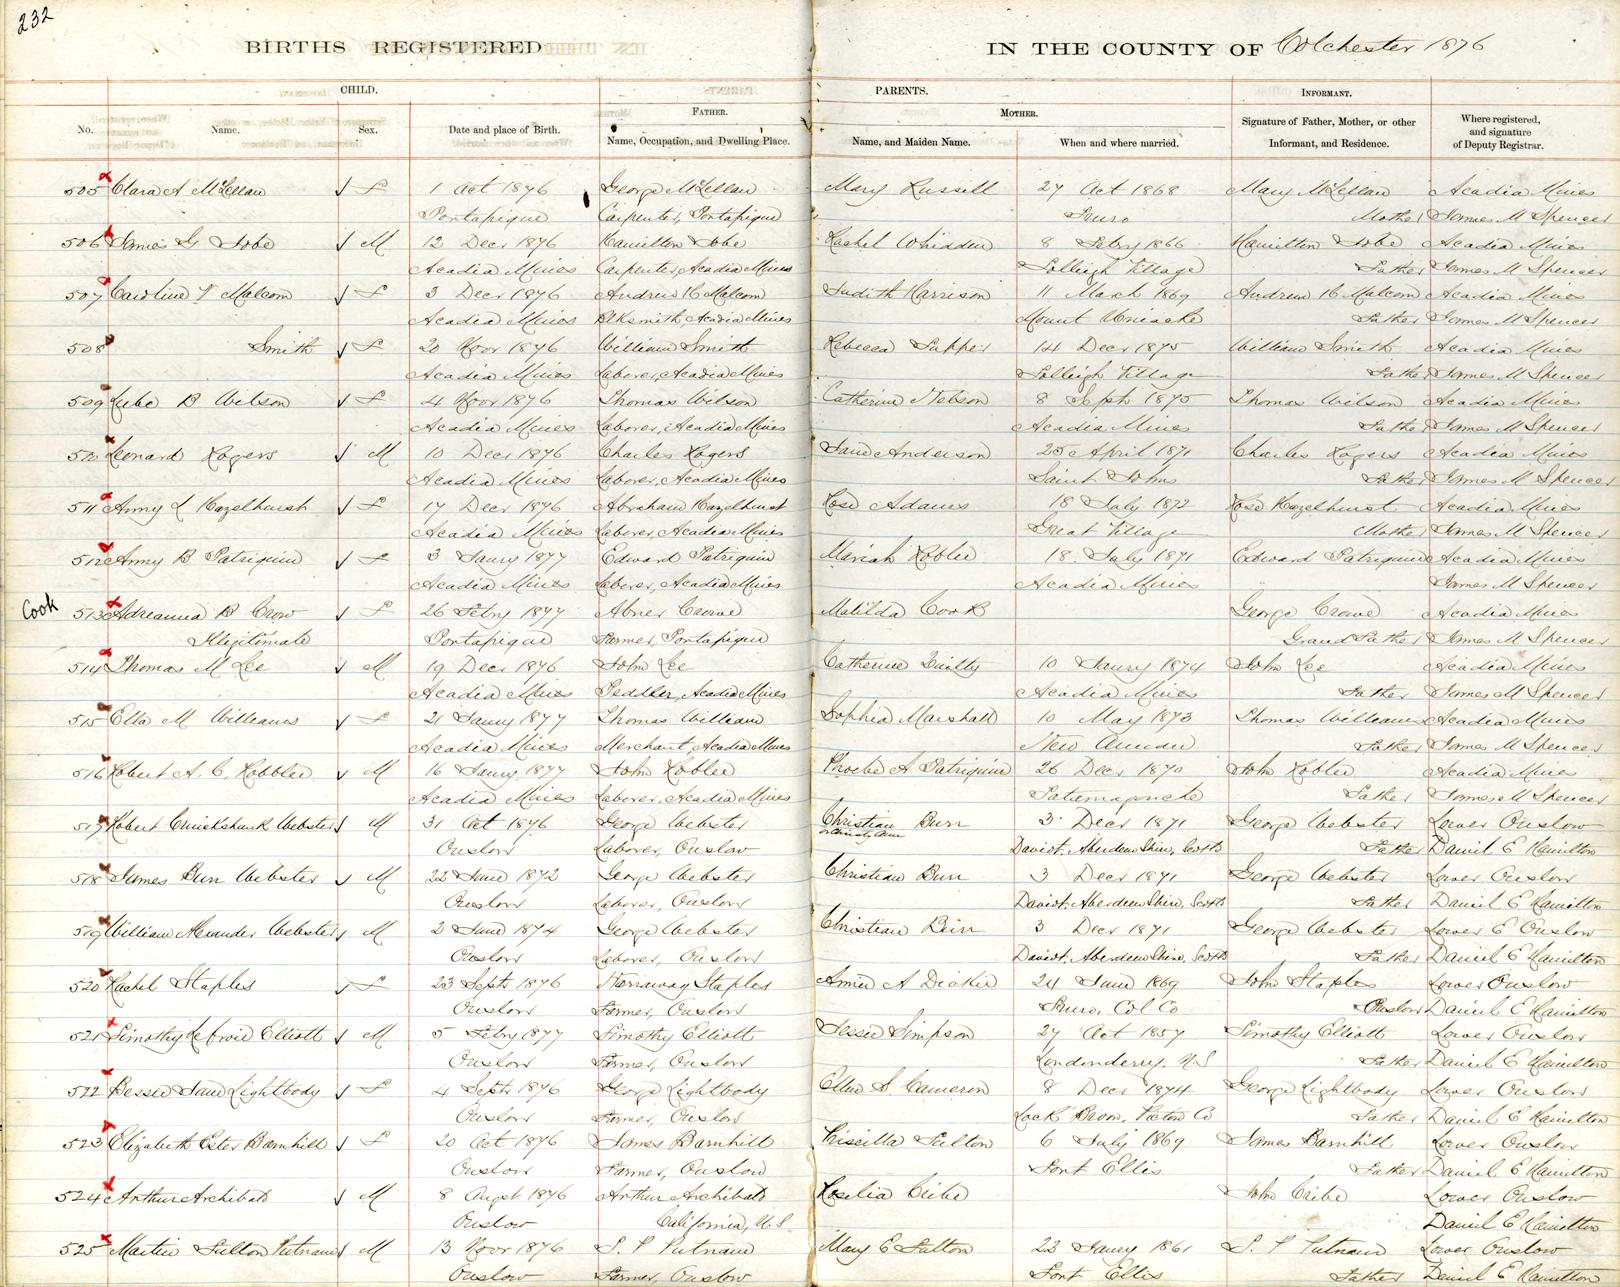 232
BIRTHS REGISTERED IN THE COUNTY OF Colchester 1876
CHILD. PARENTS. INFORMANT.
FATHER. MOTHER.
No. Name. Sex. Date and place of Birth. Name, Occupation, and Dwelling Place. Name, and Maiden Name. When and where married. Signature of Father, Mother, or other Informant, and Residence. Where registered, and signature of Deputy Registrar.
505 Clara A McLellan F 1 Oct 1876 George McLellan Mary Russell 27 Oct 1868 Mary McLellan Acadia Mines
Portapique Carpenter, Portapique Truro Mother James M Spencer
506 James G Tobe M 12 Decr 1876 Hamilton Tobe Rachel Whidden 8 Febry 1866 Hamilton Tobe Acadia Mines
Acadia Mines Carpenter, Acadia Mines Folleigh Village Father James M Spencer
507 Caroline V Malcom F 3 Decr 1876 Andrew H Malcom Judith Harrison 11 March 1869 Andrew H Malcom Acadia Mines
Acadia Mines Blksmith, Acadia Mines Mount Uniacke Father James M Spencer
508 Smith F 20 Novr 1876 William Smith Rebecca Tupper 14 Decr 1875 William Smith Acadia Mines
Acadia Mines Laborer, Acadia Mines Folleigh Village Father James M Spencer
509 B Wilson F 4 Novr 1876 Thomas Wilson Catherine Nelson 8 Sept 1875 Thomas Wilson Acadia Mines
Acadia Mines Laborer, Acadia Mines Acadia Mines Father James M Spencer
510 Leonard Rogers M 10 Decr 1876 Charles Rogers Jane Anderson 25 April 1871 Charles Rogers Acadia Mines
Acadia Mines Laborer, Acadia Mines Saint Johns Father James M Spencer
511 Anny L Hazelhurst F 17 Decr 1876 Abraham Hazelhurst Rose Adams 18 July 1872 Rose Hazelhurst Acadia Mines
Acadia Mines Laborer, Acadia Mines Great Village Mother James M Spencer
512 Anny B Patriquin F 3 Janry 1877 Edward Patriquin Mariah Koblee 18 July 1871 Edward Patriquin Acadia Mines
Acadia Mines Laborer, Acadia Mines Acadia Mines James M Spencer
Cook 513 Adreanna B Crow F 26 Febry 1877 Abner Crowe Matilda Cook George Crowe Acadia Mines
Illegitimate Portapique Farmer, Portapique Grand Father James M Spencer
514 Thomas M Lee M 19 Decr 1876 John Lee Catherine Quilty 10 Janry 1874 John Lee Acadia Mines
Acadia Mines Pedller, Acadia Mines Acadia Mines Father James M Spencer
515 Ella M Williams F 21 Janry 1877 Thomas William Sophia Marshall 10 May 1873 Thomas Williams Acadia Mines
Acadia Mines Merchant, Acadia Mines New Annan Father James M Spencer
516 Robert A. C. Kobblee M 16 Janry 1877 John Koblee Phoebe A Patriquin 26 Decr 1870 John Koblee Acadia Mines
Acadia Mines Laborer, Acadia Mines Tatamagouche Father James M Spencer
517 Robert Cruickshank Webster M 31 Oct 1876 George Webster Christian Burr 3 Decr 1871 George Webster Lower Onslow
Onslow Laborer, Onslow or Christy Ann Daviot, Aberdeen Shire, Scotd Father Daniel E Hamilton
518 James Burr Webster M 22 June 1872 George Webster Christian Burr 3 Decr 1871 George Webster Lower Onslow
Onslow Laborer, Onslow Daviot, Aberdeen Shire, Scotd Father Daniel E Hamilton
519 William Alexander Webster M 2 June 1874 George Webster Christian Burr 3 Decr 1871 George Webster Lower E Onslow
Onslow Laborer, Onslow Daviot, Aberdeen Shire, Scotd Father Daniel E Hamilton
520 Rachel Staples F 23 Sept 1876 Staples Annie A Dickie 24 June 1869 John Staples Lower Onslow
Onslow Farmer, Onslow Truro, Col Co Onslow Daniel E Hamilton
521 Timothy Lefroid Elliott M 5 Febry 1877 Timothy Elliott Jessie Simpson 27 Oct 1857 Timothy Elliott Lower Onslow
Onslow Farmer, Onslow Londonderry, N.S Father Daniel E Hamilton
522 Bessie Jane Lightbody F 4 Sept 1876 George Lightbody Ellen S. Cameron 8 Decr 1874 George Lightbody Lower Onslow
Onslow Farmer, Onslow Lock Broom, Pictou Co Father Daniel E Hamilton
523 Elizabeth Ester Barnhill F 20 Oct 1876 James Barnhill Priscilla Fulton 6 July 1869 James Barnhill Lower Onslow
Onslow Farmer, Onslow Fort Ellis Father Daniel E Hamilton
524 Arthur Archibald M 8 Augst 1876 Arthur Archibald Rosilia Cribe John Cribe Lower Onslow
Onslow California, U.S Daniel E Hamilton
525 Martin Fulton Putnam M 13 Novr 1876 S. P Putnam Mary E Fulton 22 Janry 1861 S. P Putnam Lower Onslow
Onslow Farmer, Onslow Fort Ellis Father Daniel E Hamilton